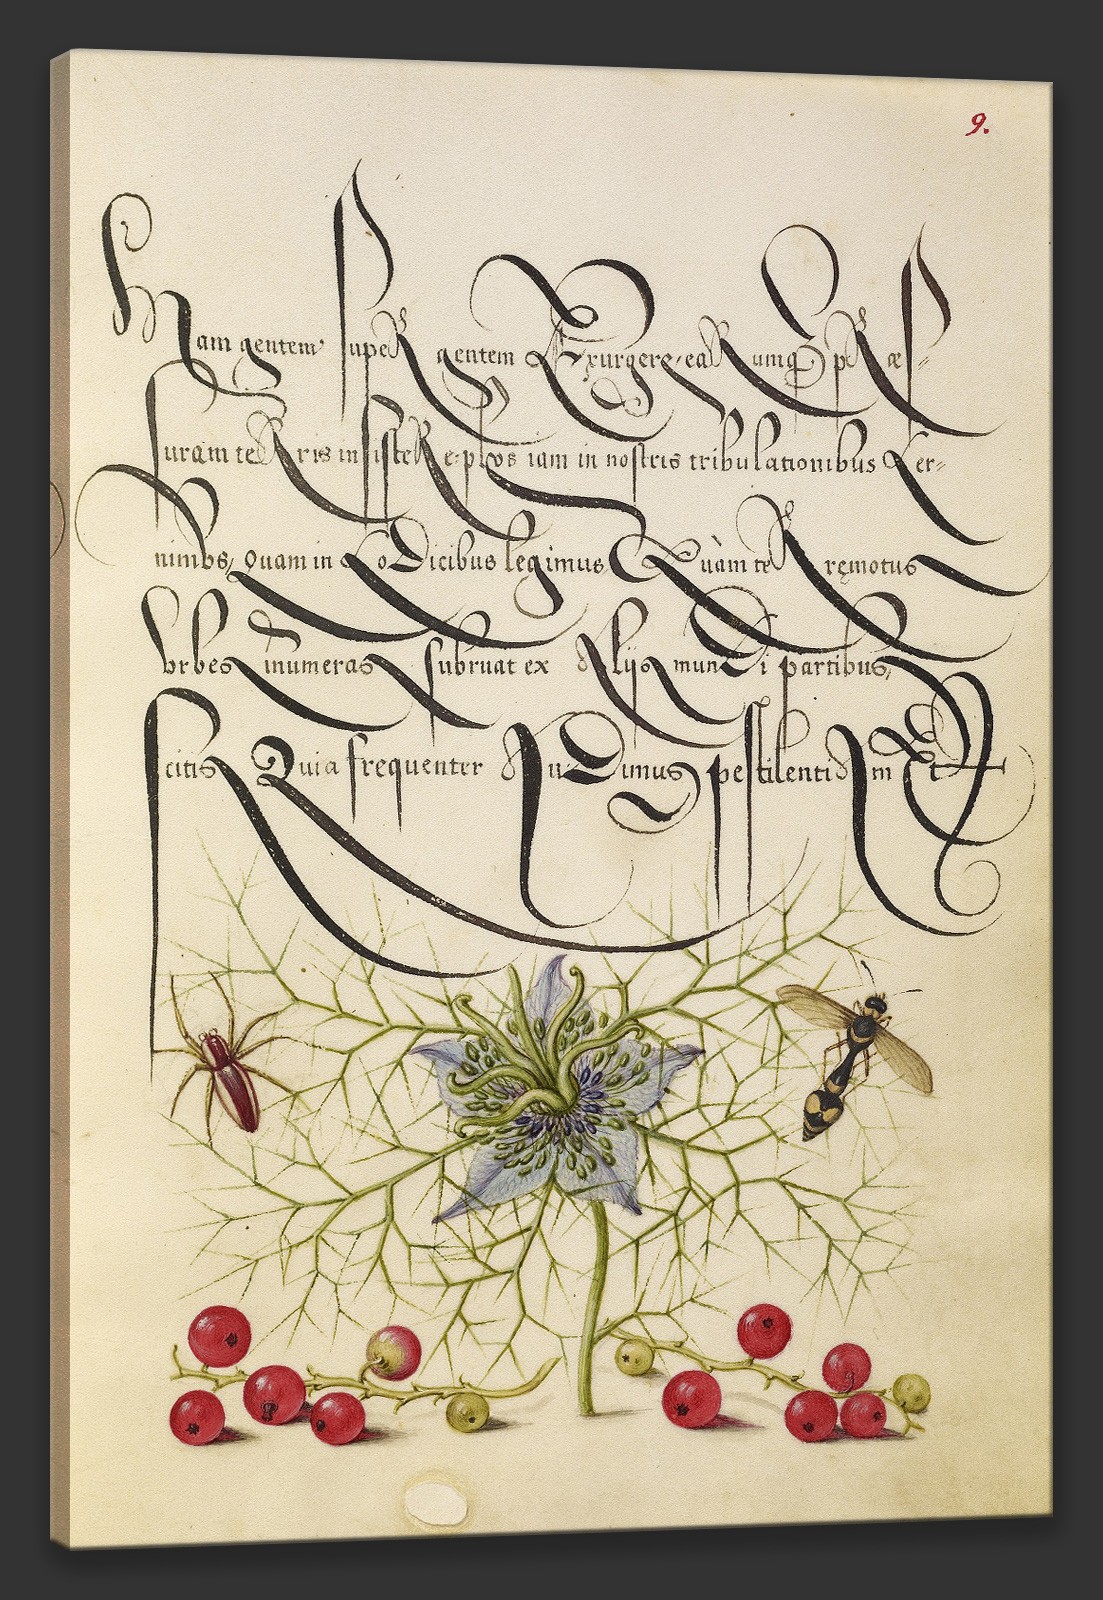 9.
Nam gentem super gentem Exurgere, earumq́ præs-
suram terris insistere, plus iam in nostris tribulationibus cer-
nimus, quam in Codicibus legimus Quàm terręmotus
Vrbes inumeras subruat ex Alijs mundi partibus,
scitis Quia frequenter Audimus pestilentiam Et